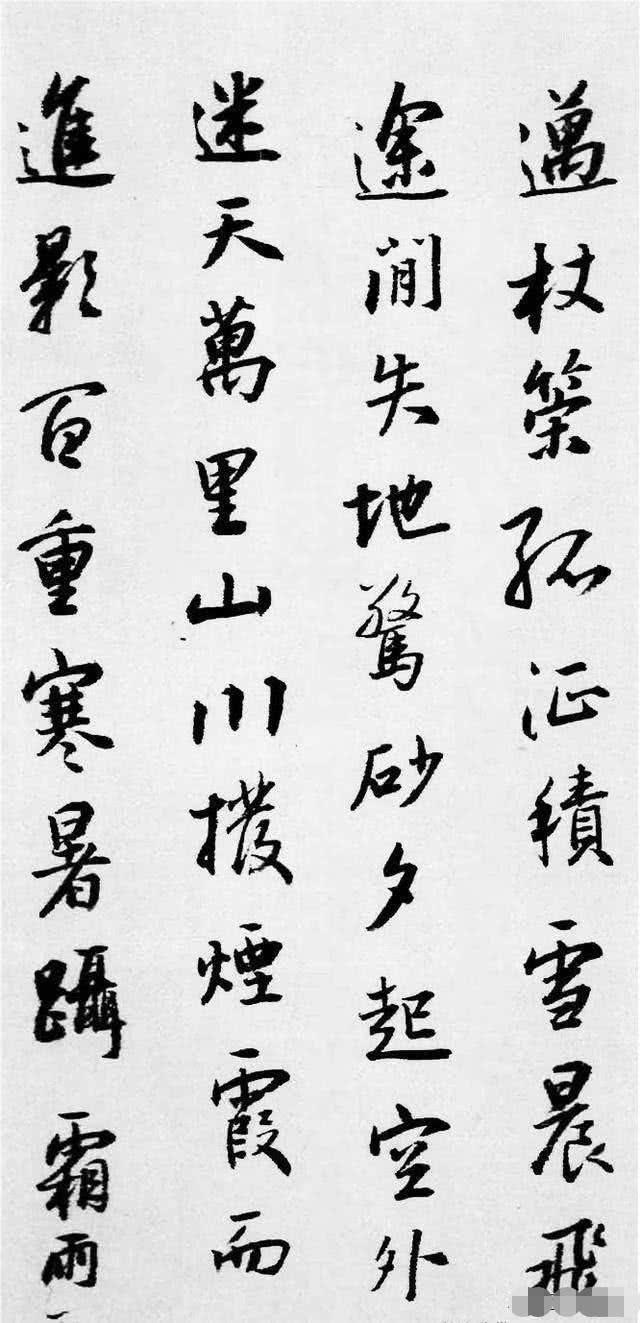 邁杖策孤征積雪晨飛
途間失地驚砂夕起空外
迷天萬里山川撥煙霞而
進影百重寒暑躡霜雨